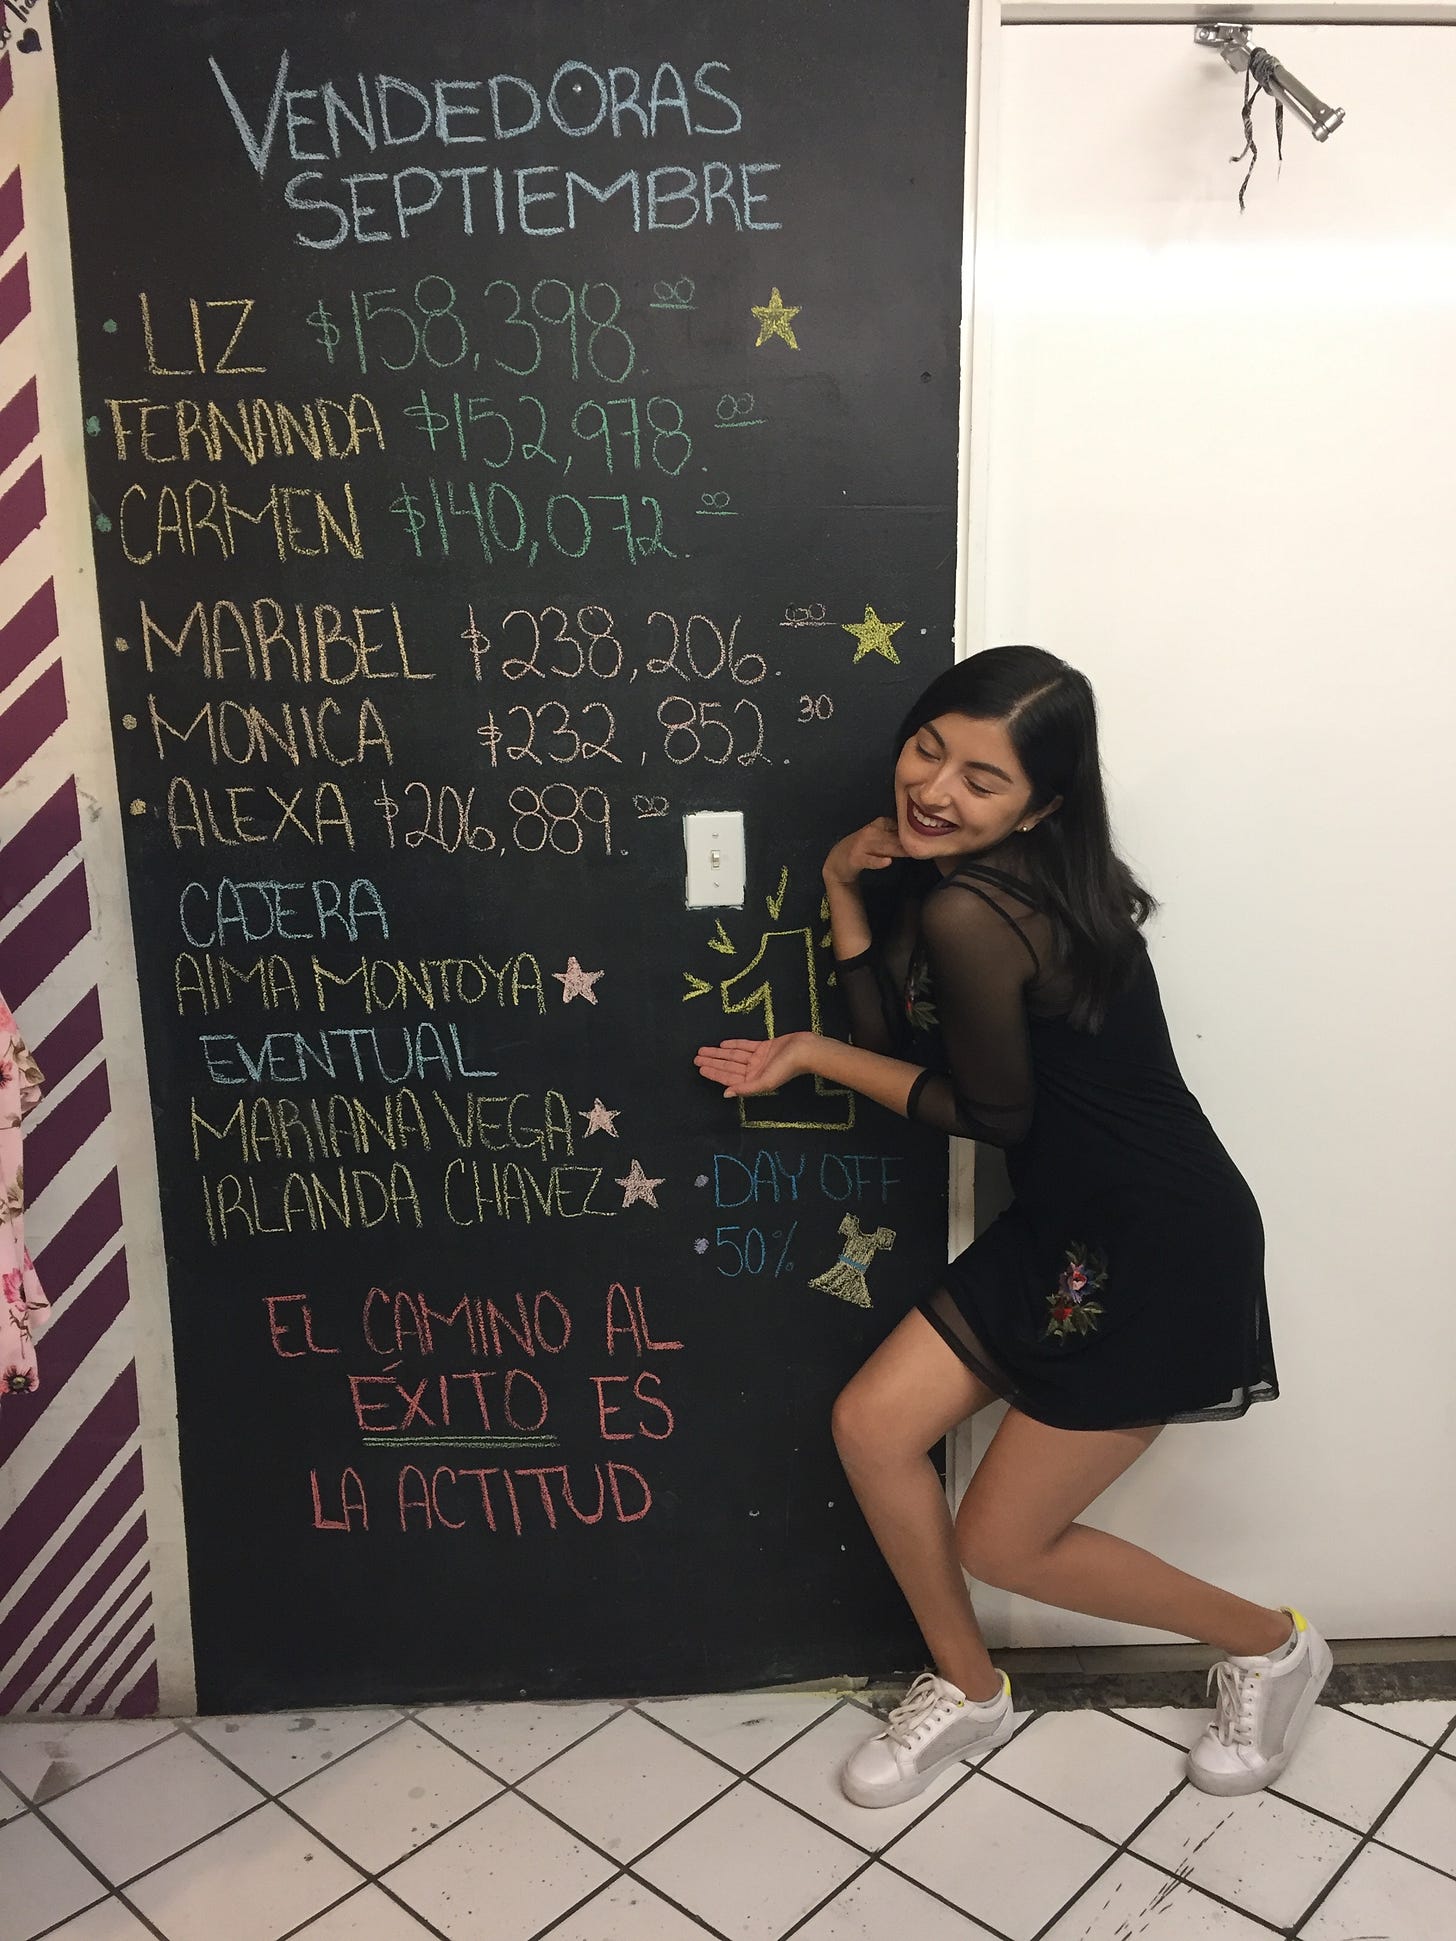 VENDEDORAS
SEPTIEMBRE
• LIZ $158,398.00
• FERNANDA $152,978.00
• CARMEN $140,072.00
• MARIBEL $238,206.00
• MONICA $232,852.30
• ALEXA $206,889.00
CAJERA
AIMA MONTOYA
EVENTUAL
MARIANA VEGA
IRLANDA CHAVEZ
1
• DAY OFF
• 50%
EL CAMINO AL
ÉXITO ES
LA ACTITUD